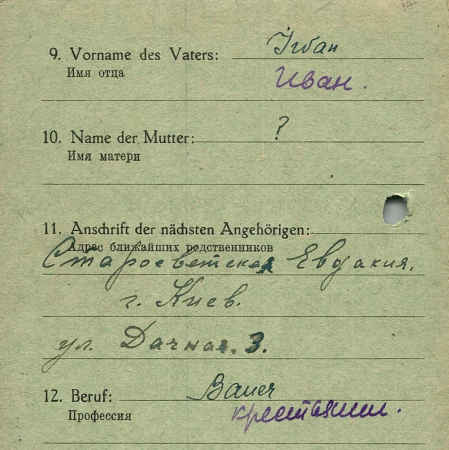 9. Vorname des Vaters: Iwan
Имя отца Иван.
10. Name der Mutter: ?
Имя матери
11. Anschrift der nächsten Angehörigen:
Адрес ближайших родственников
Старосветская Евдакия.
г. Киев.
ул. Дачная. 3.
12. Beruf: Bauer
Профессия крестьянин.